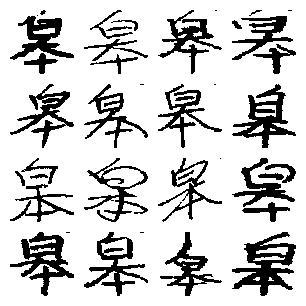 皋皋皋皋
皋皋皋皋
皋皋皋皋
皋皋皋皋